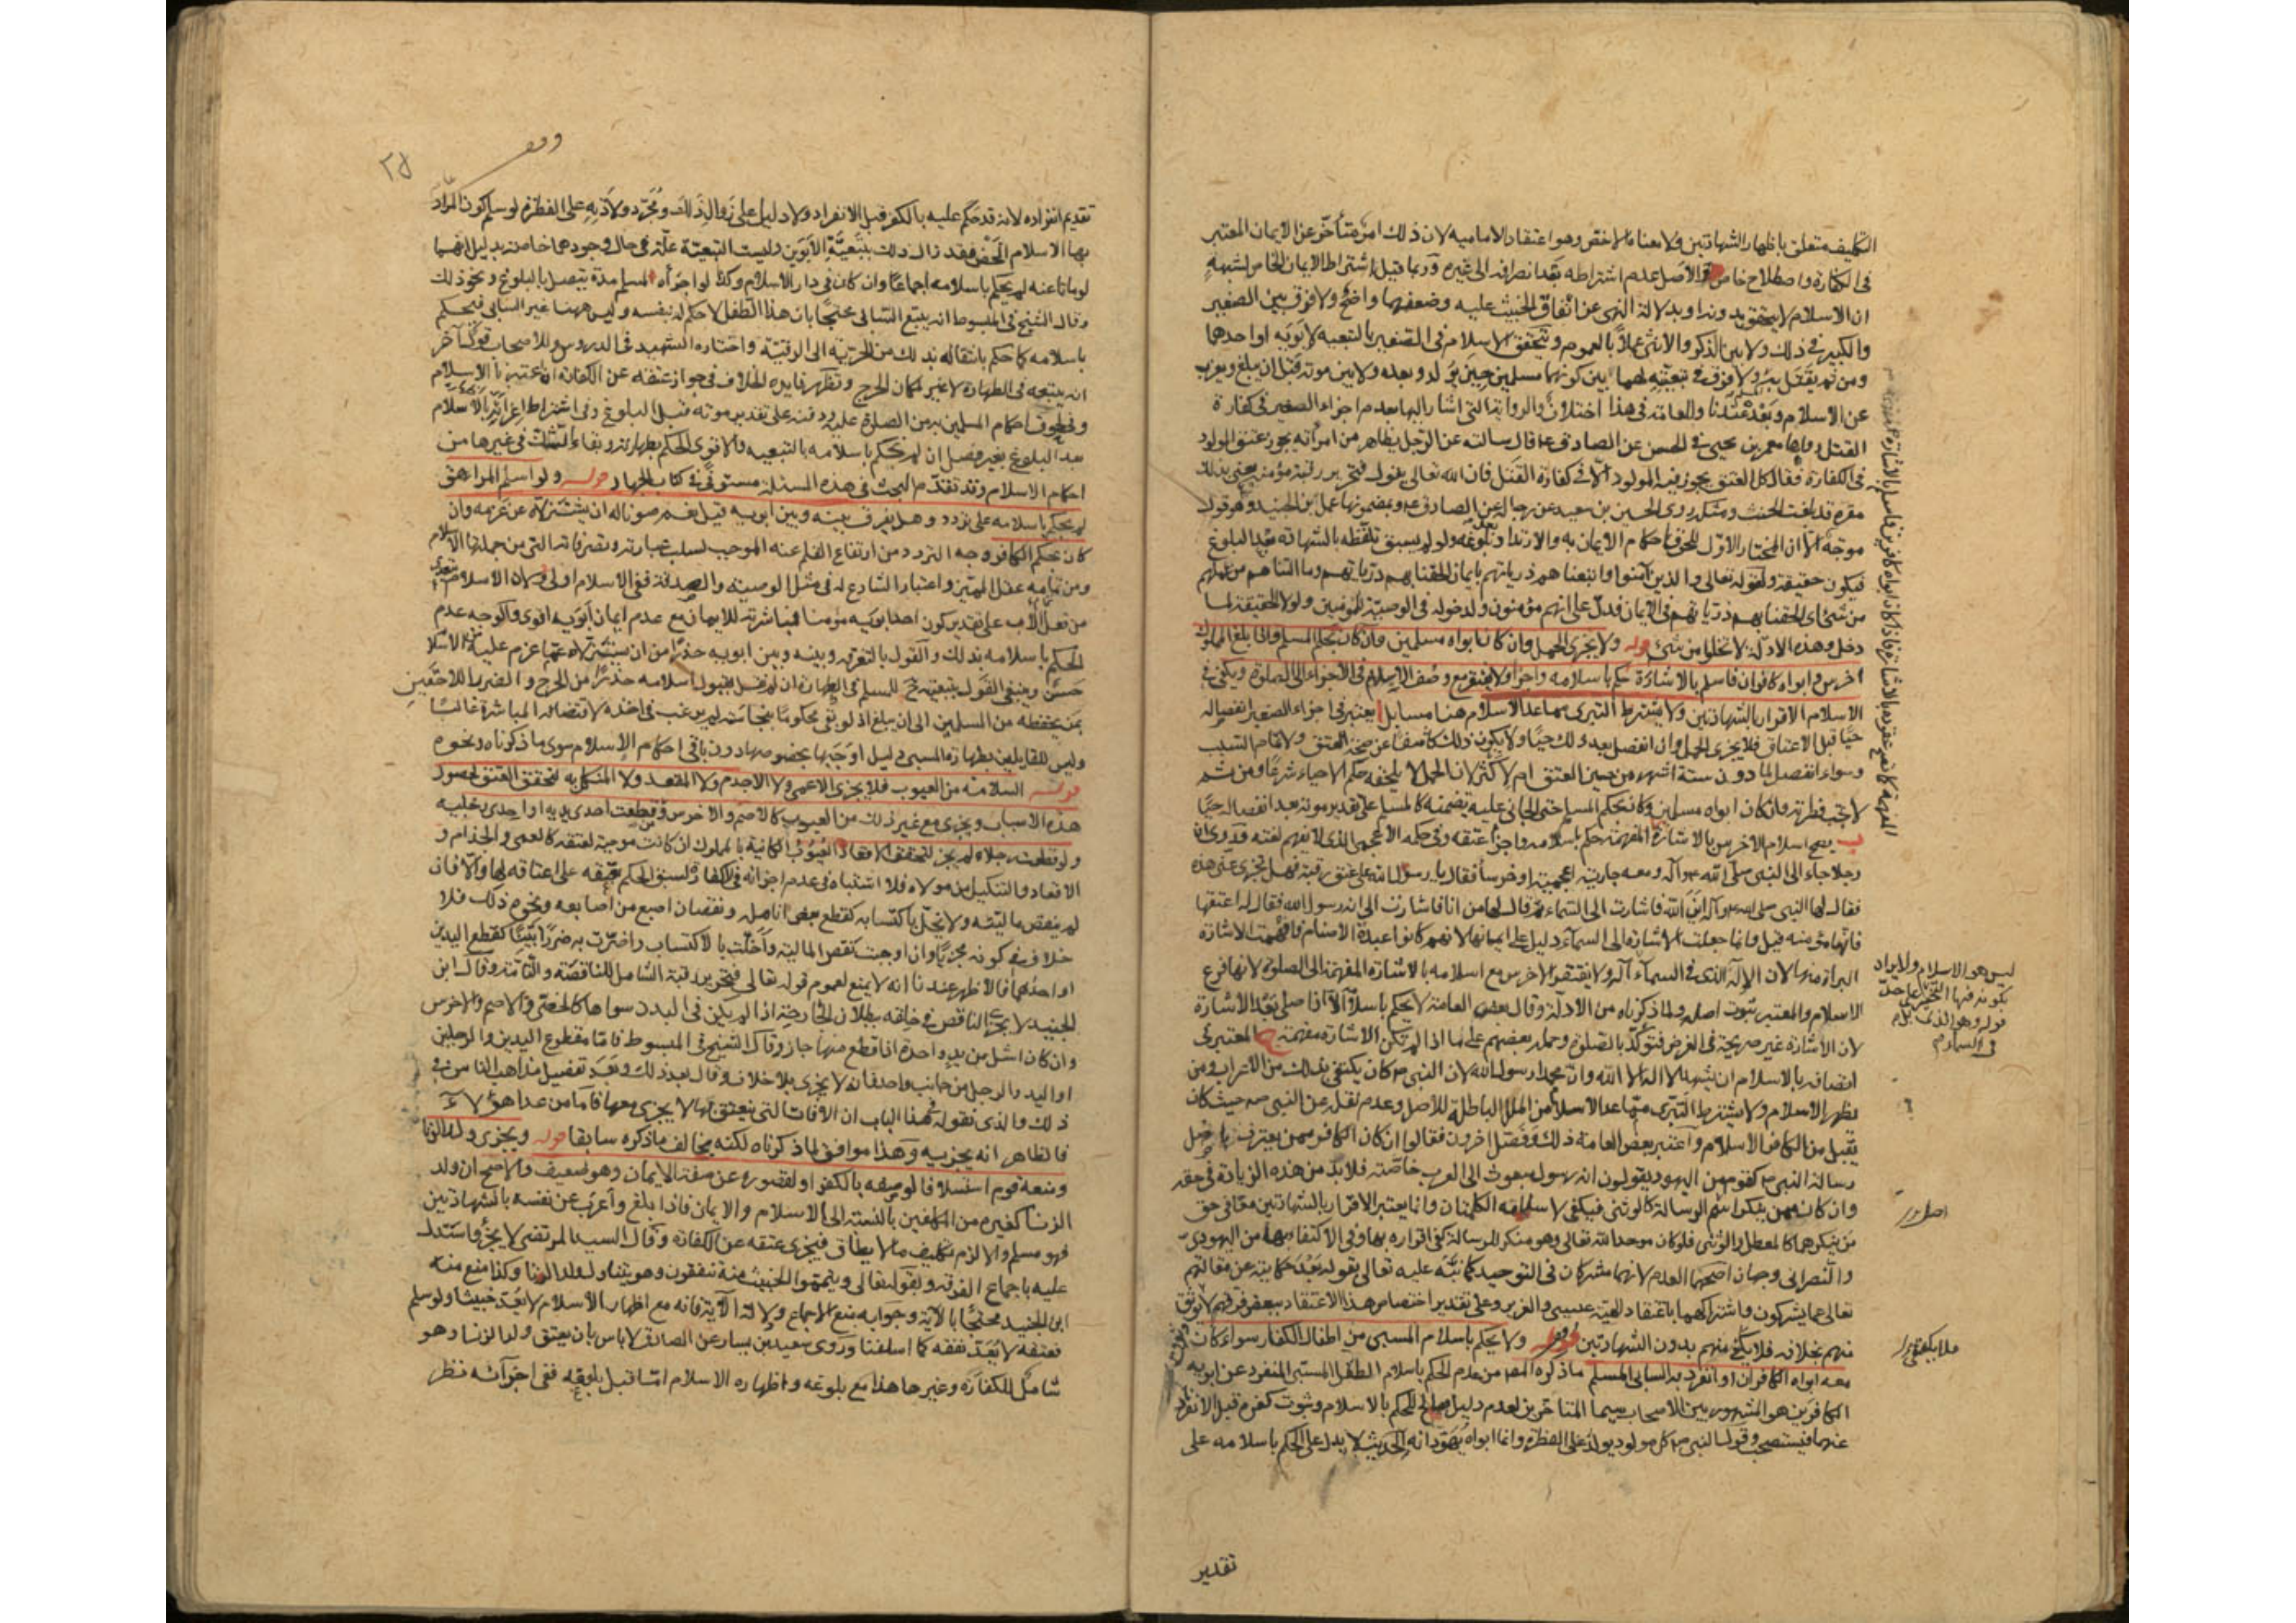 التكليف متعلق باظهار الشهادتين ولا معناه الاخص وهو اعتقاد الامامية لان ذلك امر متأخر عن الايمان المعتبر
في الكفارة واصطلاح خاص والاصل عدم اشتراطه بعد انصرافه الى غيره وربما قيل باشتراط الايمان الخاص لشبهة
ان الاسلام لا يتحقق بدونه او بدلالة النهى عن انفاق الخبيث عليه وضعفهما واضح ولا فرق بين الصغير
والكبير في ذلك ولا بين الذكر والانثى عملا بالعموم ويتحقق الاسلام في الصغير بالتبعية لابويه او احدهما
ومن ثم يقتل به ولا فرق في تبعيته لهما بين كونهما مسلمين حين يولد وبعده ولا بين موته قبل ان يبلغ ويعرب
عن الاسلام وبعده عندنا وللعامة في هذا اختلاف والرواية التي اشار اليها بعدم اجزاء الصغير في كفارة
القتل رواها معمر بن يحيى في الحسن عن الصادق ع قال سالته عن الرجل يظاهر من امرأته يجوز عتق المولود
في الكفارة فقال كل العتق يجوز فيه المولود الا في كفارة القتل فان الله تعالى يقول فتحرير رقبة مؤمنة يعني بذلك
مقرة قد بلغت الحنث ومثله روى الحسين بن سعيد عن رجاله عن الصادق ع وبمضمونها عمل ابن الجنيد وهو قول
موجه الا ان المختار الاول للحوق احكام الايمان به والارتداد بعد بلوغه ولو لم يسبق تلفظه بالشهادة بعد البلوغ
فيكون حقيقة ولقوله تعالى والذين آمنوا واتبعناهم ذرياتهم بايمان الحقنا بهم ذرياتهم وما التناهم من عملهم
من شئ اى الحقنا بهم ذرياتهم في الايمان فدل على انهم مؤمنون ولدخوله في الوصية للمؤمنين ولولا الحقيقة لما
دخل وهذه الادلة لا تخلوا من شئ قوله ولا يجزى الحمل وان كان ابواه مسلمين وان كان بحكم المسلم واذا بلغ المملوك
اخرس وابواه كافران فاسلم بالاشارة حكم باسلامه واجزأ ولا يفتقر مع وصف الاسلام في الاجزاء الى الصلوة ويكفى في
الاسلام الاقرار بالشهادتين ولا يشترط التبرى مما عدا الاسلام هنا مسايل ا يعتبر في اجزاء الصغير انفصاله
حيا قبل الاعتاق فلا يجزى الحمل وان انفصل بعد ذلك حيا ولا يكون ذلك كاشفا عن صحة العتق ولا تمام السبب
وسواء انفصل لما دون ستة اشهر من حين العتق ام لاكثر لان الحمل لا يلحقه حكم الاحياء شرعا ومن ثم
لا تجب فطرته وان كان ابواه مسلمين وكان بحكم المسلم حتى الجانى عليه يضمنه كالمسلم على تقدير موته بعد انفصاله حيا
ب يصح اسلام الاخرس بالاشارة المفهمة حكم باسلامه واجزأ عتقه وفي حكمه الاعجمى الذى لا يفهم لغته وقد روى ان
رجلا جاء الى النبى صلى الله عليه وآله ومعه جارية اعجمية او خرسا فقال يا رسول الله على عتق رقبة فهل تجزى عنى هذه
فقال لها النبى صلى الله عليه وآله اين الله فاشارت الى السماء ثم قال لها من انا فاشارت الى انه رسول الله فقال له اعتقها
فانها مؤمنة قيل وانما جعلت الاشارة الى السماء دليلا على ايمانها لانهم كانوا عبدة الاصنام فافهمت الاشارة
البراءة منها لان الاله الذى في السماء آله ولا يفتقر الاخرس مع اسلامه بالاشارة المفهمة الى الصلوة لانها فرع
الاسلام والمعتبر ثبوت اصله ولما ذكرناه من الادلة وقال بعض العامة لا يحكم باسلامه الا اذا صلى بعد الاشارة
لان الاشارة غير صريحة في الغرض فتؤكد بالصلوة وحمله بعضهم على ما اذا لم تكن الاشارة مفهمة ج المعتبر في
اتصافه بالاسلام ان يشهد ان لا اله الا الله وان محمدا رسول الله لان النبى ص كان يكتفى بذلك من الاعراب ومن
يظهر الاسلام ولا يشترط التبرى مما عدا الاسلام من الملل الباطلة للاصل وعدم نقل عن النبى ص حيث كان
يقبل من الكافر الاسلام واعتبر بعض العامة ذلك وفصل اخرون فقالوا ان كان الكافر ممن يعترف باصل
رسالة النبى ص كقوم من اليهود يقولون انه رسول مبعوث الى العرب خاصة فلا بد من هذه الزيادة في حقه
وان كان ممن ينكر اسم الرسالة كالوثنى فيكفى لاسلامه الكلمتان وانما يعتبر الاقرار بالشهادتين معا في حق
من ينكرهما كالمعطل والوثنى فلو كان موحدا لله تعالى وهو منكر للرسالة كفى اقراره بها وفي الاكتفا بها من اليهودى
والنصرانى وجهان اصحهما العدم لانهما مشركان في التوحيد كما نبه عليه تعالى بقوله بعد حكايته عن مقالتهم
تعالى عما يشركون واشتراكهما باعتقاد الهية عيسى والعزير وعلى تقدير اختصاص هذا الاعتقاد ببعض فرقهم لا يوثق
منهم بخلافه فلا يكفى منهم بدون الشهادتين قوله ولا يحكم باسلام المسبى من اطفال الكفار سواء كان
معه ابواه الكافران او انفرد به السابى المسلم ما ذكره المص من عدم الحكم باسلام الطفل المسبى المنفرد عن ابويه
الكافرين هو المشهور بين الاصحاب سيما المتاخرين لعدم دليل صالح للحكم بالاسلام وثبوت كفره قبل الانفراد
عنهما فيستصحب وقول النبى ص كل مولود يولد على الفطرة وانما ابواه يهودانه الحديث لا يدل على الحكم باسلامه على
تقدير
ليس هو الاسلام ولا يراد
بكونه فيها التحيز على حد
قوله وهو الذى
في السماء اله
تقديم انفراده لانه قد حكم عليه بالكفر قبل الانفراد ولا دليل على زوال ذلك ومجرد ولادته على الفطرة لو سلم كون المراد
بها الاسلام المحض فقد زال ذلك بتبعية الابوين وليست التبعية علة في حال وجودهما خاصة بدليل انهما
لو ماتا عنه لم يحكم باسلامه اجماعا وان كان في دار الاسلام وكذا لو اجزأه المسلم مدة يتصل بالبلوغ ونحو ذلك
وقال الشيخ في المبسوط انه يتبع السابى محتجا بان هذا الطفل لا حكم له بنفسه وليس ههنا غير السابى فيحكم
باسلامه كما حكم بانتقاله بذلك من الحرية الى الرقية واختاره الشهيد في الدروس وللاصحاب قول آخر
انه يتبعه في الطهارة لا غير لمكان الحرج وتظهر فايدة الخلاف في جواز عتقه عن الكفارة ان اعتبرنا الاسلام
وفي لحوق احكام المسلمين به من الصلوة عليه ودفنه على تقدير موته قبل البلوغ وفي اشتراط اعرابه بالاسلام
بعد البلوغ بغير فصل ان لم نحكم باسلامه بالتبعية والاقوى الحكم بطهارته وبقاء الشك في غيرها من
احكام الاسلام وقد تقدم البحث في هذه المسئلة مستوفى في كتاب الجهاد قوله ولو اسلم المراهق
لم يحكم باسلامه على تردد وهل يفرق بينه وبين ابويه قيل نعم صونا له ان يستزلاه عن عزمه وان
كان بحكم الكافر وجه التردد من ارتفاع القلم عنه الموجب لسلب عبارته وتصرفاته التى من جملتها الاسلام
ومن تمامية عقل المميز واعتبار الشارع له في مثل الوصية والصدقة ففى الاسلام اولى ولان الاسلام يتعدى
من فعل الاب على تقدير كون احد ابويه مؤمنا فمباشرته للايمان مع عدم ايمان ابويه اقوى والاوجه عدم
الحكم باسلامه بذلك والقول بالتفرقة بينه وبين ابويه حذرا من ان يستزلاه عما عزم عليه من الاسلام
حسن وينبغى القول بتبعيته ح للمسلم في الطهارة ان لم نقل بقبول اسلامه حذرا من الحرج والضرر اللاحقين
بمن يحفظه من المسلمين الى ان يبلغ اذ لو بقى محكوما بنجاسته لم يرغب في اخذه لاقتضائه المباشرة غالبا
وليس للقايلين بطهارة المسبى دليل اوجبها بخصوصها دون باقى احكام الاسلام سوى ما ذكرناه ونحوه
قوله السلامة من العيوب فلا يجزى الاعمى ولا الاجذم ولا المقعد ولا المنكل به لتحقق العتق لحصول
هذه الاسباب ويجزى مع غير ذلك من العيوب كالاصم والاخرس ومن قطعت احدى يديه او احدى رجليه
ولو قطعت رجلاه لم يجز لتحقق الاقعاد العيوب الكاينة بالمملوك ان كانت موجبة لعتقه كالعمى والجذام و
الاقعاد والتنكيل من مولاه فلا اشتباه في عدم اجزائه في الكفارة لسبق الحكم بعتقه على اعتاقه لها والا فان
لم ينقص ماليته ولا تخل باكتسابه كقطع بعض انامله ونقصان اصبع من اصابعه ونحوه ذلك فلا
خلاف في كونه مجزيا وان اوجبت نقص المالية واخلت بالاكتساب واضرت به ضررا بينا كقطع اليدين
او احدهما فالاظهر عندنا انه لا يمنع لعموم قوله تعالى فتحرير رقبة الشامل للناقصة والتامة وقال ابن
الجنيد لا يجزى الناقص في خلقه ببطلان الجارحة اذا لم يكن في البدن سواها كالخصى والاصم والاخرس
وان كان اشل من يد واحدة او اقطع منها جاز وقال الشيخ في المبسوط فاما مقطوع اليدين والرجلين
او اليد والرجل من جانب واحد فانه لا يجزى بلا خلاف وقال بعد ذلك وبعد تفصيل مذاهب الناس في
ذلك والذى نقوله في هذا الباب ان الافات التى ينعتق بها لا يجزى معها فاما من عدا هؤلاء
فالظاهر انه يجزيه وهذا موافق لما ذكرناه لكنه يخالف ما ذكره سابقا قوله ويجزى ولد الزنا
ومنعه قوم استسلافا لوصفه بالكفر او لقصوره عن صفة الايمان وهو ضعيف والاصح ان ولد
الزنا كغيره من المكلفين بالنسبة الى الاسلام والايمان فاذا بلغ واعرب عن نفسه بالشهادتين
فهو مسلم والا لزم تكليف ما لا يطاق فيجزى عتقه عن الكفارة وقال السيد المرتضى لا يجزى واستدل
عليه باجماع الفرقة وبقوله تعالى ولا تيمموا الخبيث منه تنفقون وهو يتناول ولد الزنا وكذا منع منه
ابن الجنيد محتجا بالآية وجوابه منع الاجماع ودلالة الآية فانه مع اظهار الاسلام لا يعد خبيثا ولو سلم
فعتقه لا يعد نفقه كما اسلفنا وروى سعيد بن يسار عن الصادق لا باس بان يعتق ولد الزنا وهو
شامل للكفارة وغيرها هذا مع بلوغه واظهاره الاسلام اما قبل بلوغه ففى اجزائه نظر